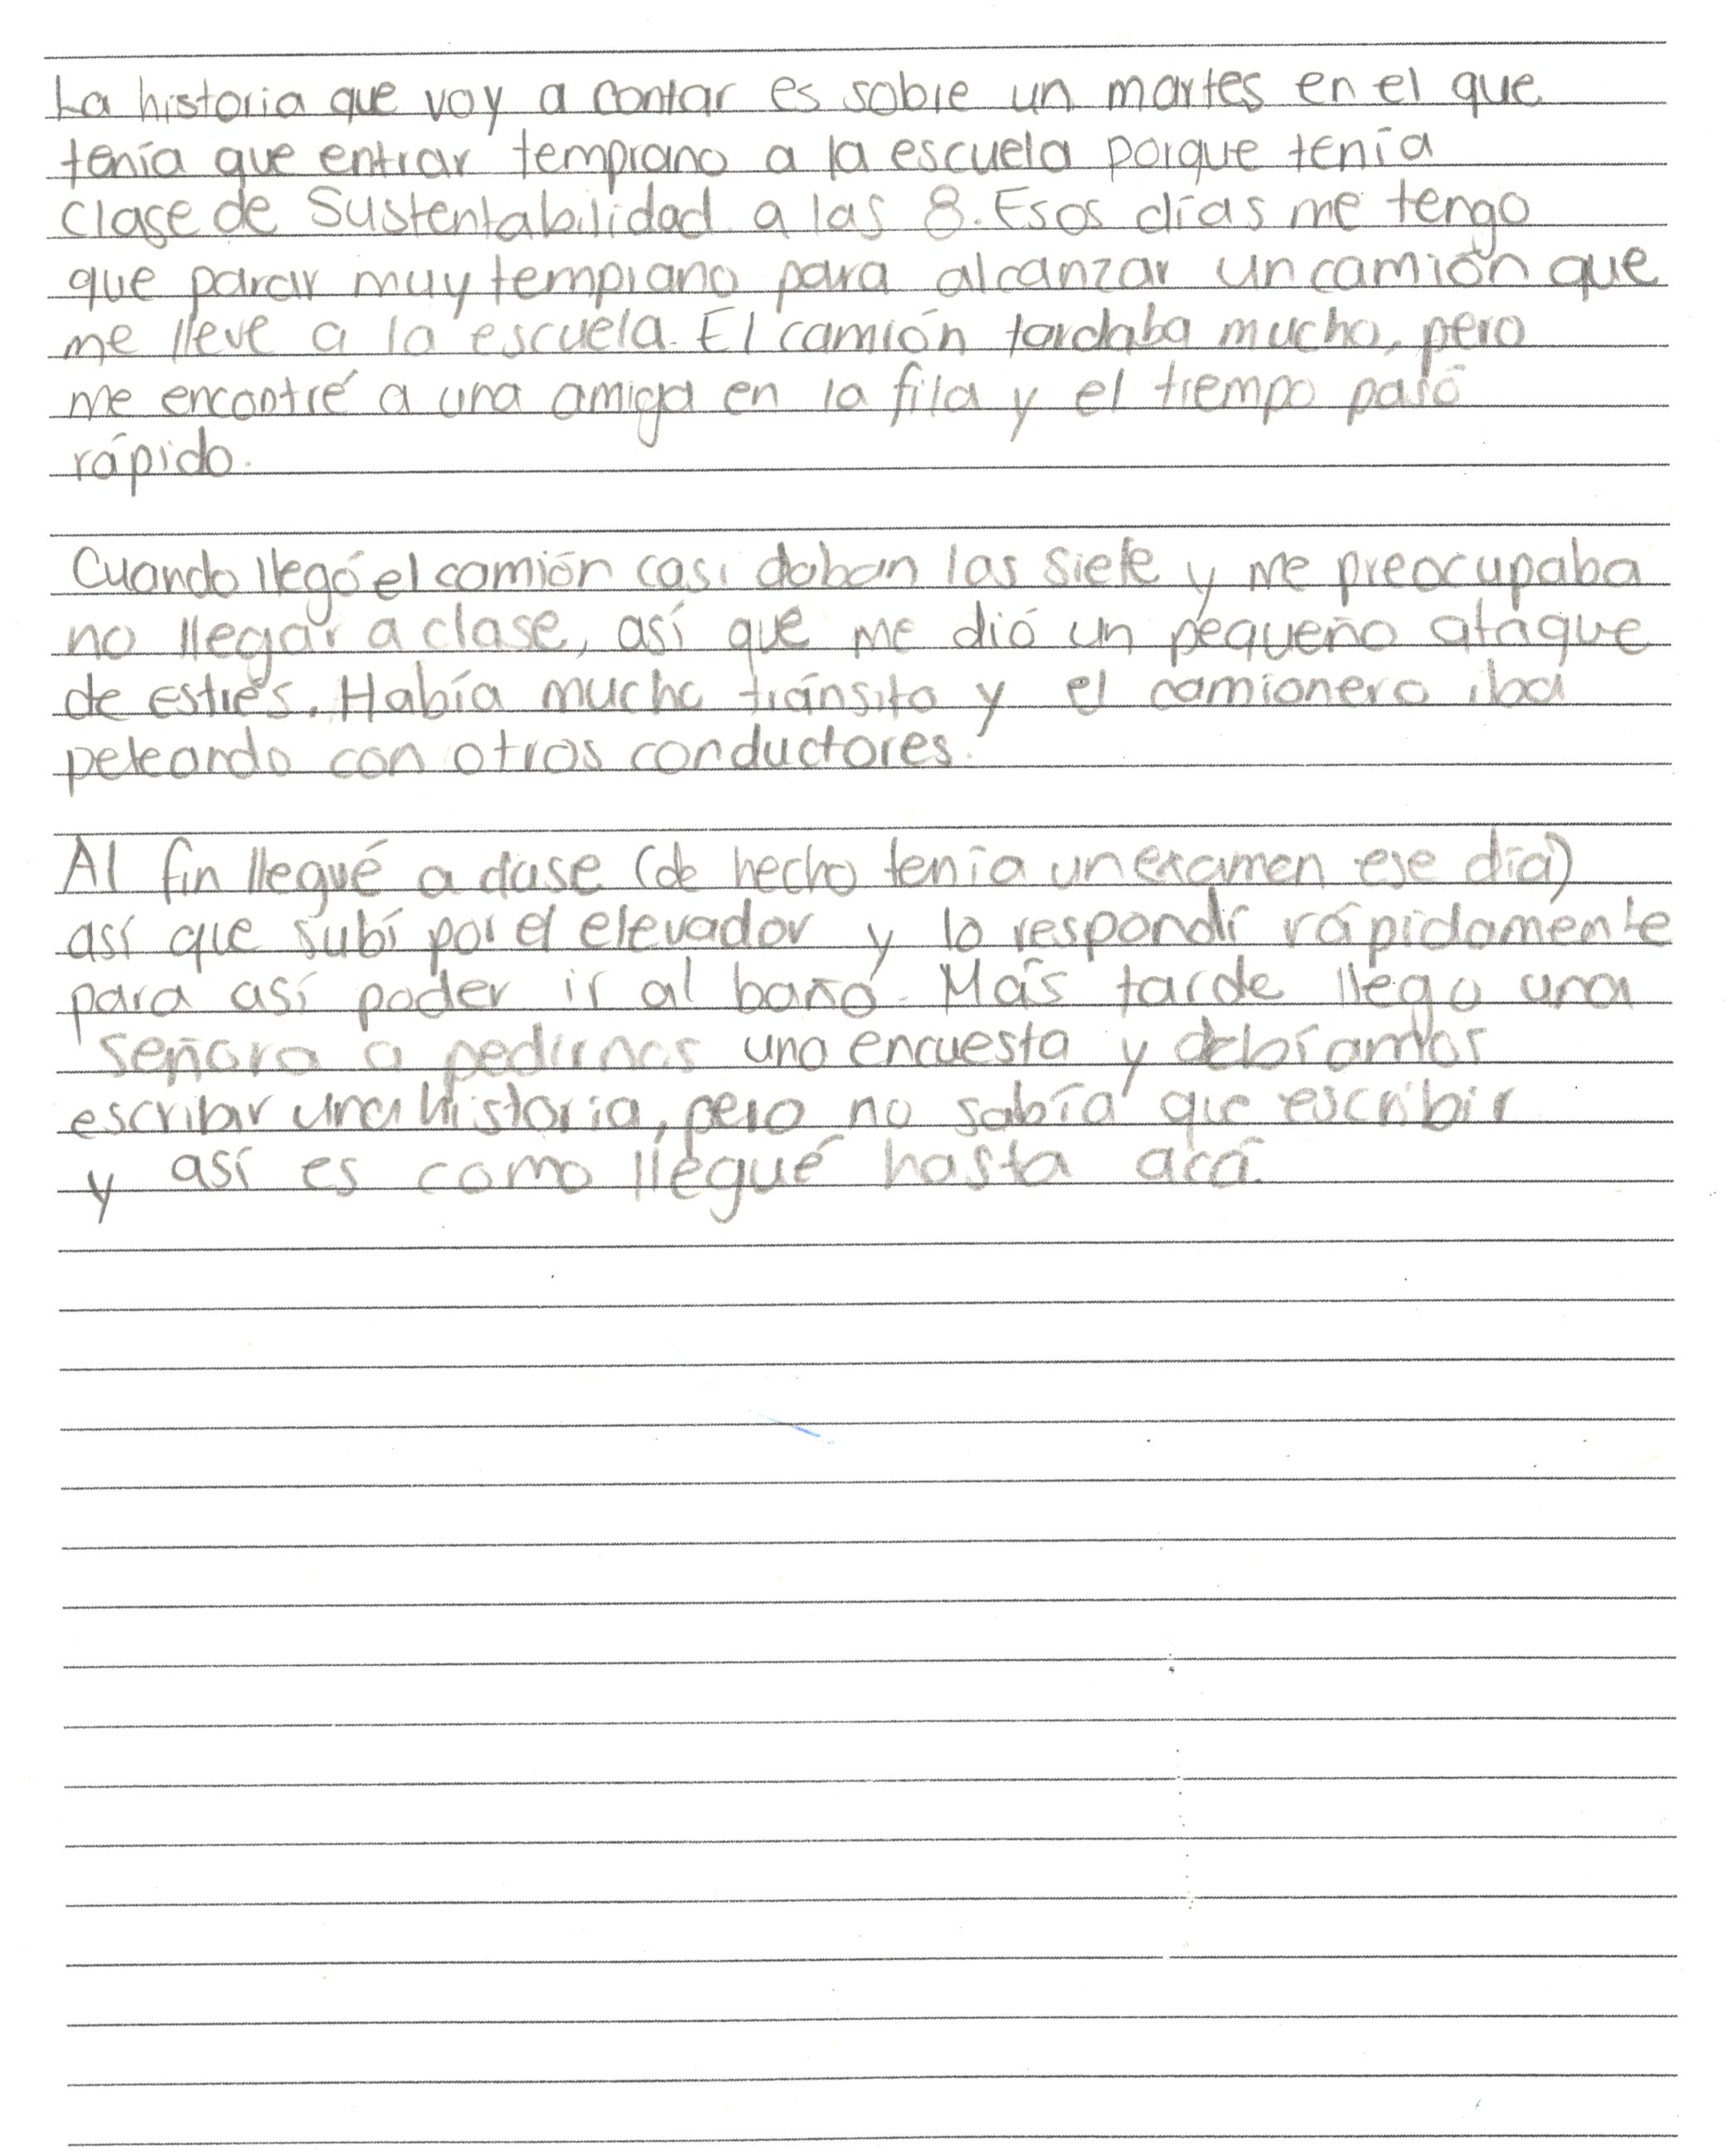 La historia que voy a contar es sobre un martes en el que
tenía que entrar temprano a la escuela porque tenía
clase de Sustentabilidad a las 8. Esos días me tengo
que parar muy temprano para alcanzar un camión que
me lleve a la escuela. El camión tardaba mucho, pero
me encontré a una amiga en la fila y el tiempo pasó
rápido.
Cuando llegó el camión casi daban las siete y me preocupaba
no llegar a clase, así que me dió un pequeño ataque
de estrés. Había mucho tránsito y el camionero iba
peleando con otros conductores.
Al fin llegué a clase (de hecho tenía un examen ese día)
así que subí por el elevador y lo respondí rápidamente
para así poder ir al baño. Más tarde llego una
señora a pedirnos una encuesta y debíamos
escribir una historia, pero no sabía que escribir
y así es como llegué hasta acá.